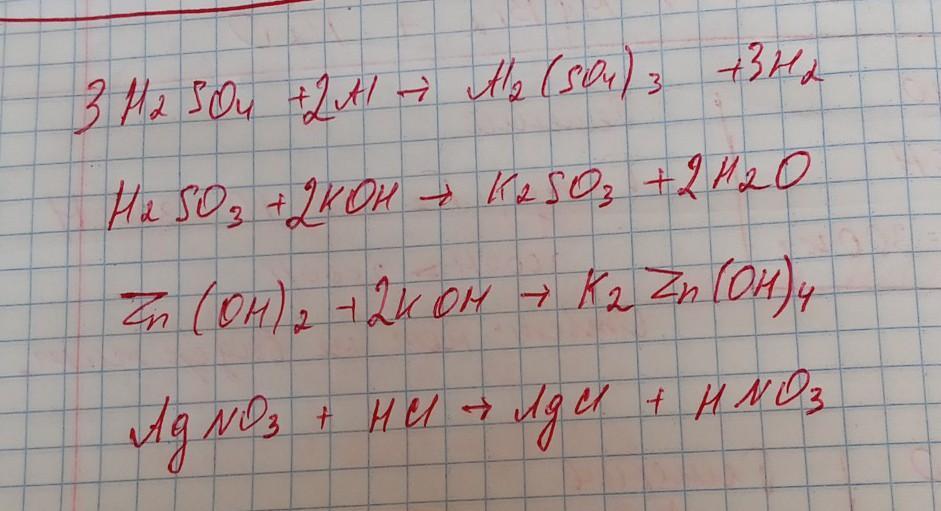 3H₂SO₄ +2Al → Al₂(SO₄)₃ +3H₂
H₂SO₃ +2KOH → K₂SO₃ +2H₂O
Zn(OH)₂ +2KOH → K₂Zn(OH)₄
AgNO₃ + HCl → AgCl + HNO₃